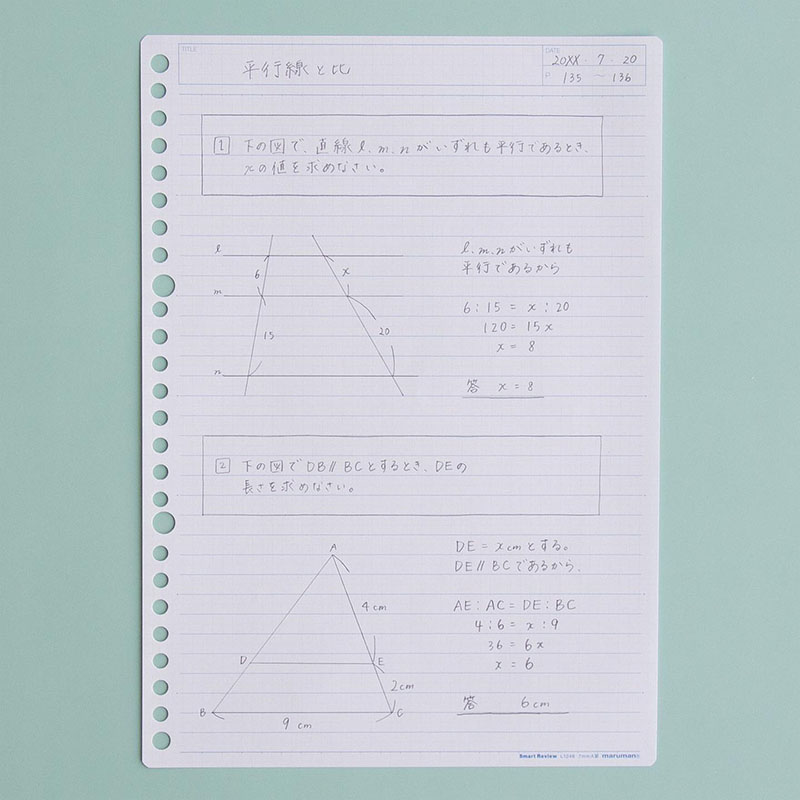 TITLE
平行線と比
DATE
20XX・7・20
P. 135 ～ 136
1 下の図で、直線ℓ、m、nがいずれも平行であるとき、
xの値を求めなさい。
ℓ
6
x
m
15
20
n
ℓ、m、nがいずれも
平行であるから
6:15 = x:20
120 = 15x
x = 8
答 x = 8
2 下の図でDB∥BCとするとき、DEの
長さを求めなさい。
A
4cm
D
E
2cm
B
C
9cm
DE = xcmとする。
DE∥BCであるから、
AE:AC = DE:BC
4:6 = x:9
36 = 6x
x = 6
答 6cm
Smart Review maruman